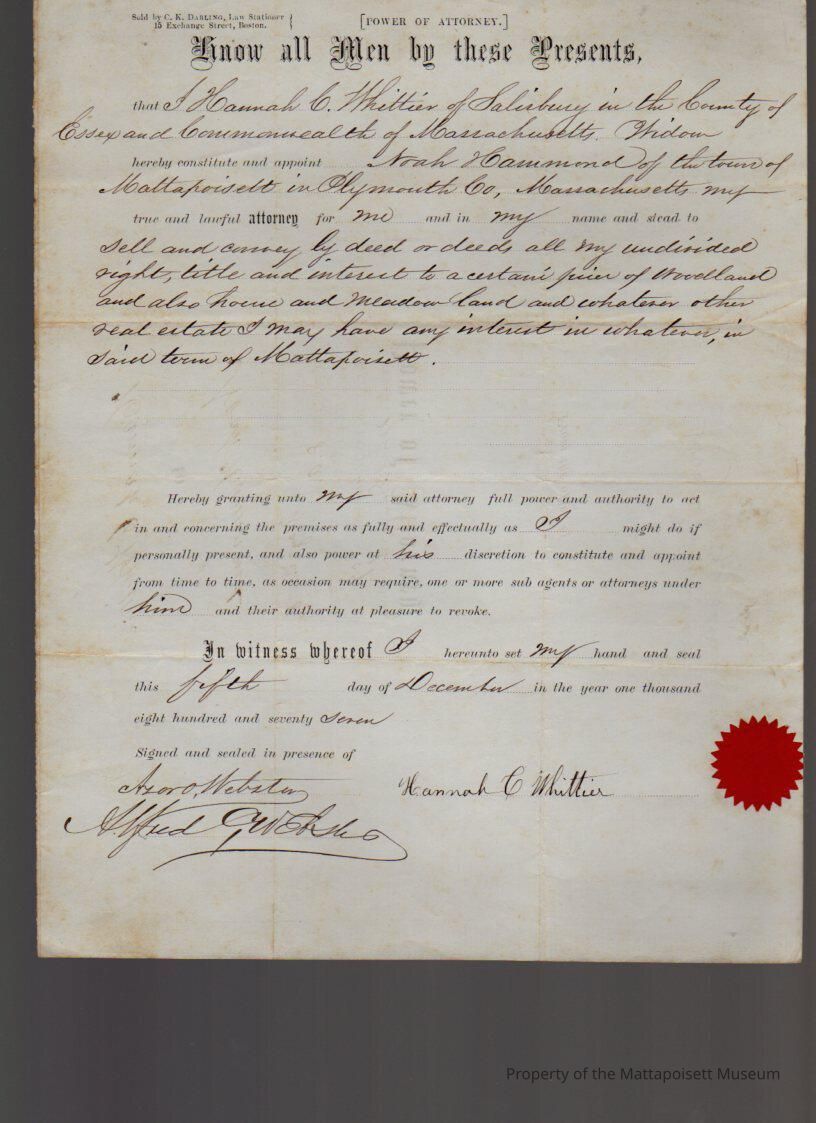 Sold by C. K. DARLING, Law Stationer
15 Exchange Street, Boston.
[POWER OF ATTORNEY.]
Know all Men by these Presents,
that I Hannah C. Whittier of Salisbury in the County of
Essex and Commonwealth of Massachusetts. Widow
hereby constitute and appoint Noah Hammond of the town of
Mattapoisett in Plymouth Co, Massachusetts my
true and lawful attorney for me and in my name and stead to
sell and convey by deed or deeds all my undivided
right, title and interest to a certain piece of Woodland
and also house and meadow land and whatever other
real estate I may have any interest in whatever, in
said town of Mattapoisett.
Hereby granting unto my said attorney full power and authority to act
in and concerning the premises as fully and effectually as I might do if
personally present, and also power at his discretion to constitute and appoint
from time to time, as occasion may require, one or more sub agents or attorneys under
him and their authority at pleasure to revoke.
In witness whereof I hereunto set my hand and seal
this fifth day of December in the year one thousand
eight hundred and seventy seven
Signed and sealed in presence of
Azor O. Webster
Hannah C Whittier
Alfred G Webster
Property of the Mattapoisett Museum